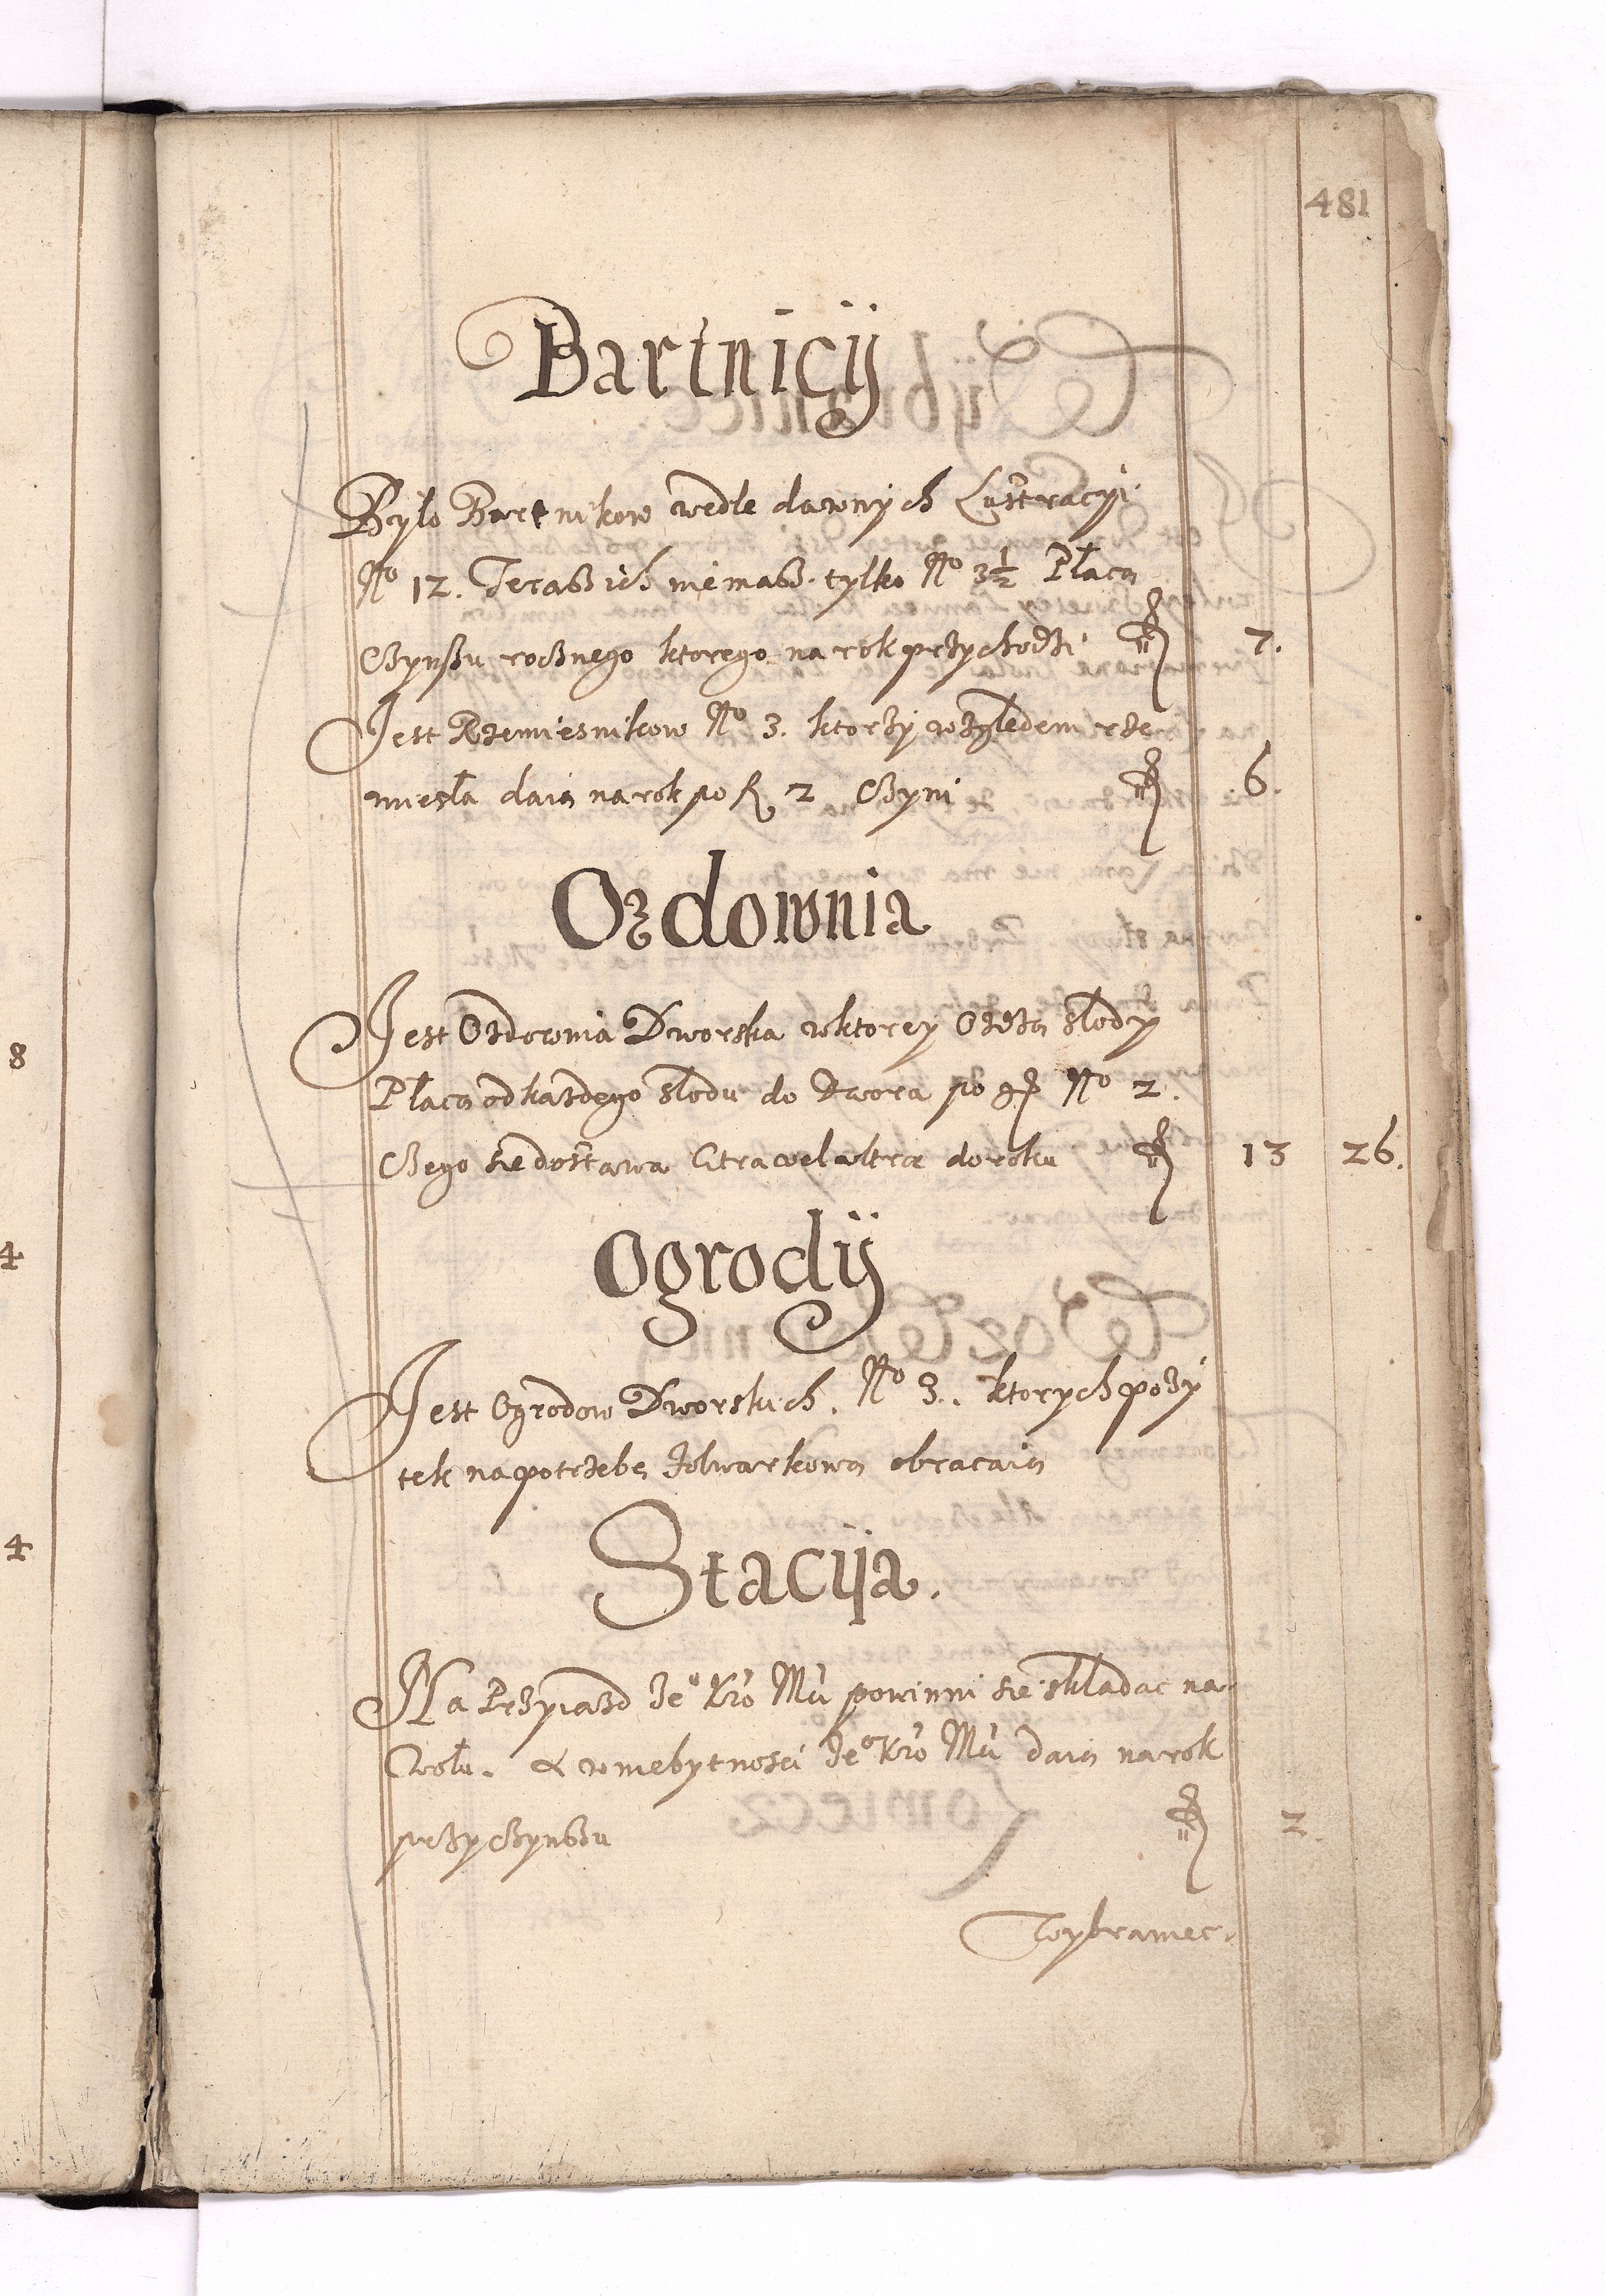 481
Bartnicÿ
Bylo Bartnikow wedle dawnych Lustracyi
No 12. Teraß ich niemaß. tylko No 3½ Płacą
Czynßu rocznego ktorego na rok przychodzi fl 7.
Jest Rzemiesnikow No 3. ktorzy względem rze
miesła daią na rok po fl 2 Czyni fl 6.
Ozdownia
Jest Ozdownia Dworska w ktorey Ozdzą slody
Płacą od kazdego slodu do Dwora po gr No 2.
Czego sie dostawa Citra vel ultra do roku fl 13 26.
Ogrodÿ
Jest Ogrodow Dworskich. No 3. ktorych pozy
tek na potrzebę folwarkową obracaią
Stacÿa.
Na Przyiazd Jeo Kro Mci powinni sie skladac na
Wolu. A w niebytnosci Jeo Kro Mci daią na rok
przy Czynßu fl 2.
Wybraniec.
8
4
4